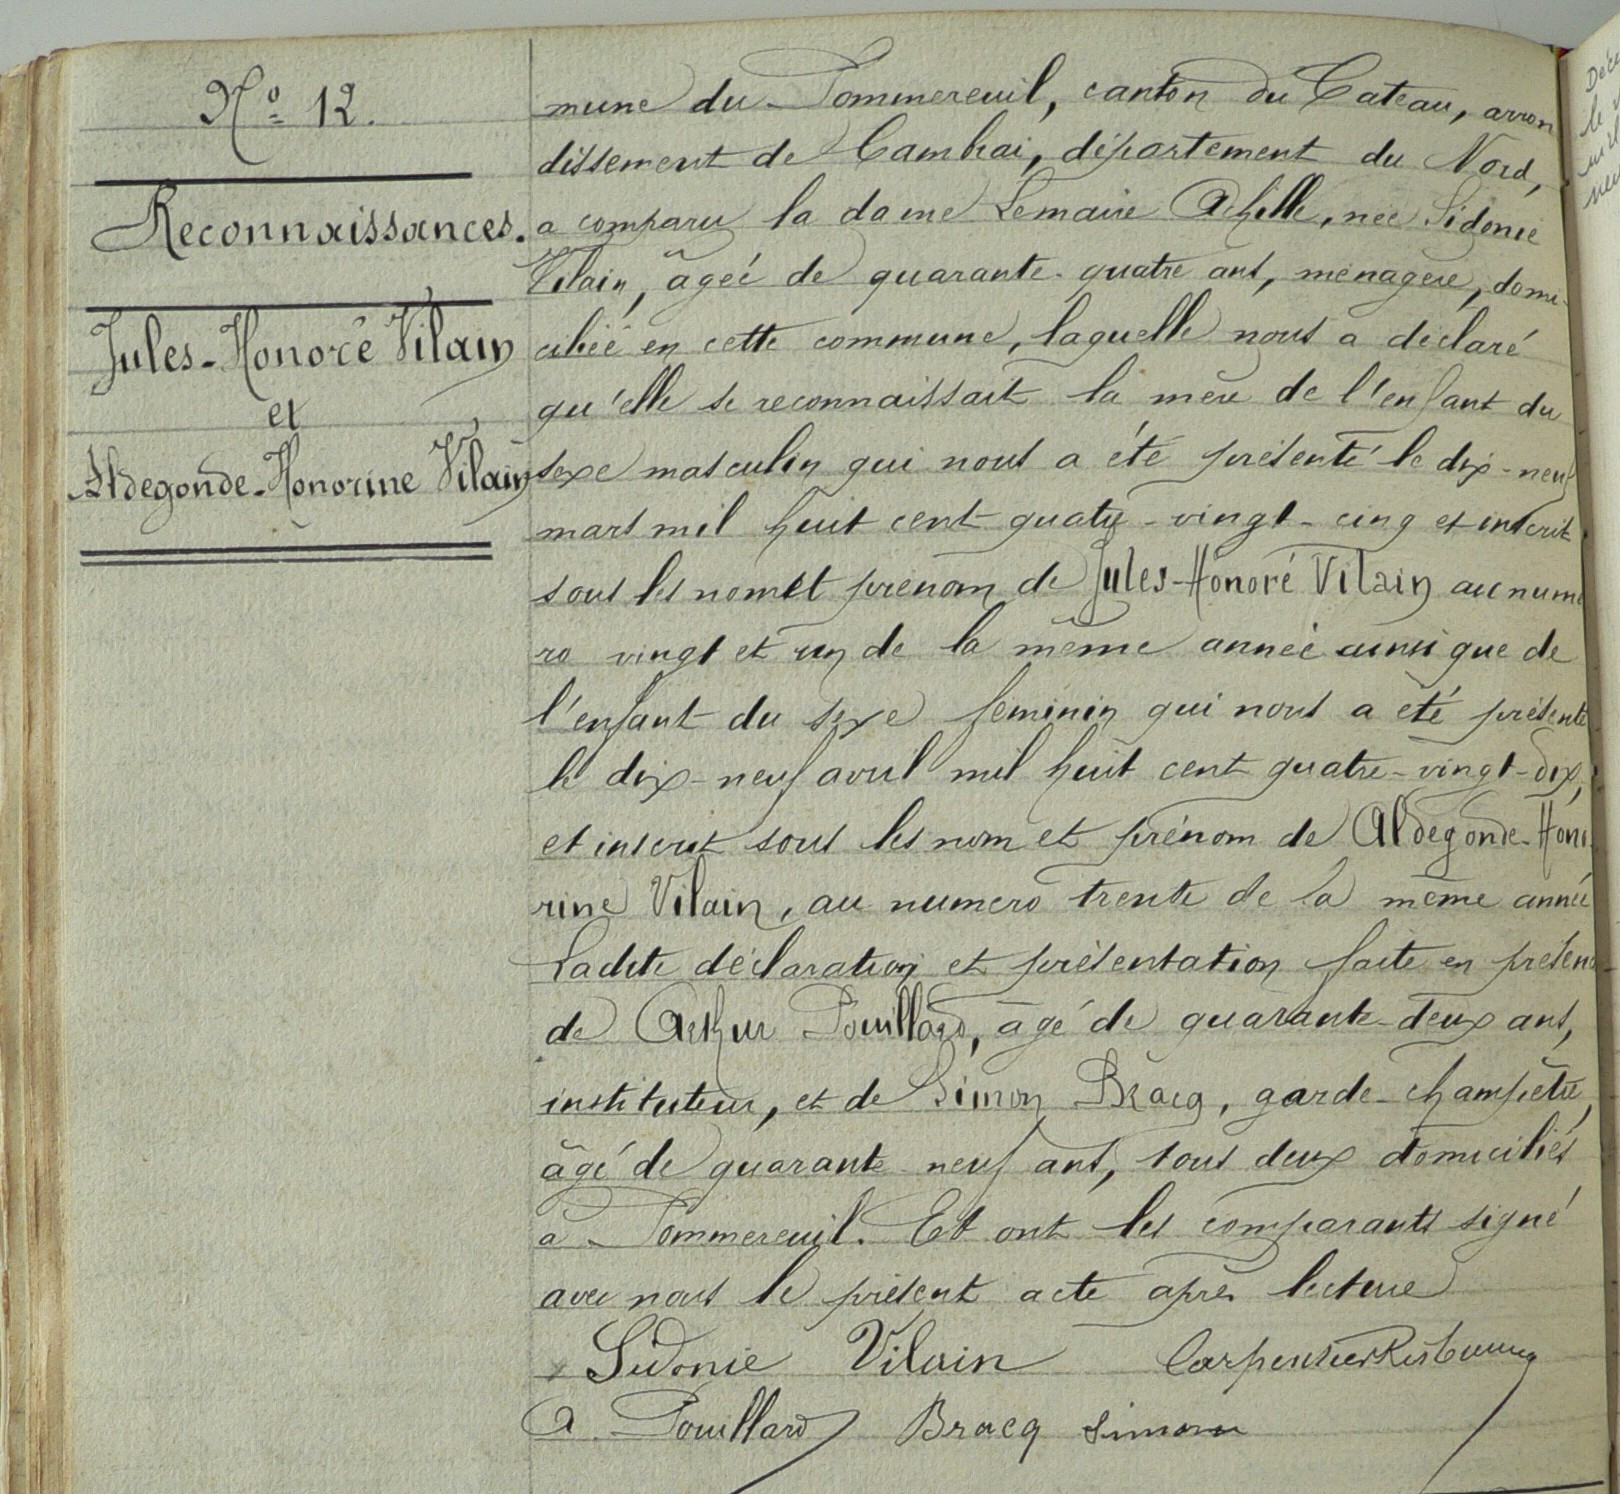 N° 12.
Reconnaissances.
Jules-Honoré Vilain
et
Aldegonde-Honorine Vilain
mune du Pommereuil, canton du Cateau, arron
dissement de Cambrai, département du Nord,
a comparu la dame Lemaire Achille, née Sidonie
Vilain, âgée de quarante-quatre ans, ménagère, domi-
ciliée en cette commune, laquelle nous a déclaré
qu'elle se reconnaissait la mère de l'enfant du
sexe masculin qui nous a été présenté le dix-neuf
mars mil huit cent quatre-vingt-cinq et inscrit
sous les nom et prénom de Jules-Honoré Vilain au numé
ro vingt et un de la même année ainsi que de
l'enfant du sexe féminin qui nous a été présenté
le dix-neuf avril mil huit cent quatre-vingt-dix,
et inscrit sous les nom et prénom de Aldegonde-Hono
rine Vilain, au numéro trente de la même année
Ladite déclaration et présentation faite en présence
de Arthur Pouillard, âgé de quarante-deux ans,
instituteur, et de Simon Bracq, garde-champêtre,
âgé de quarante neuf ans, tous deux domiciliés
à Pommereuil. Et ont les comparants signé
avec nous le présent acte après lecture
Sidonie Vilain Carpentier
A. Pouillard Bracq Simon